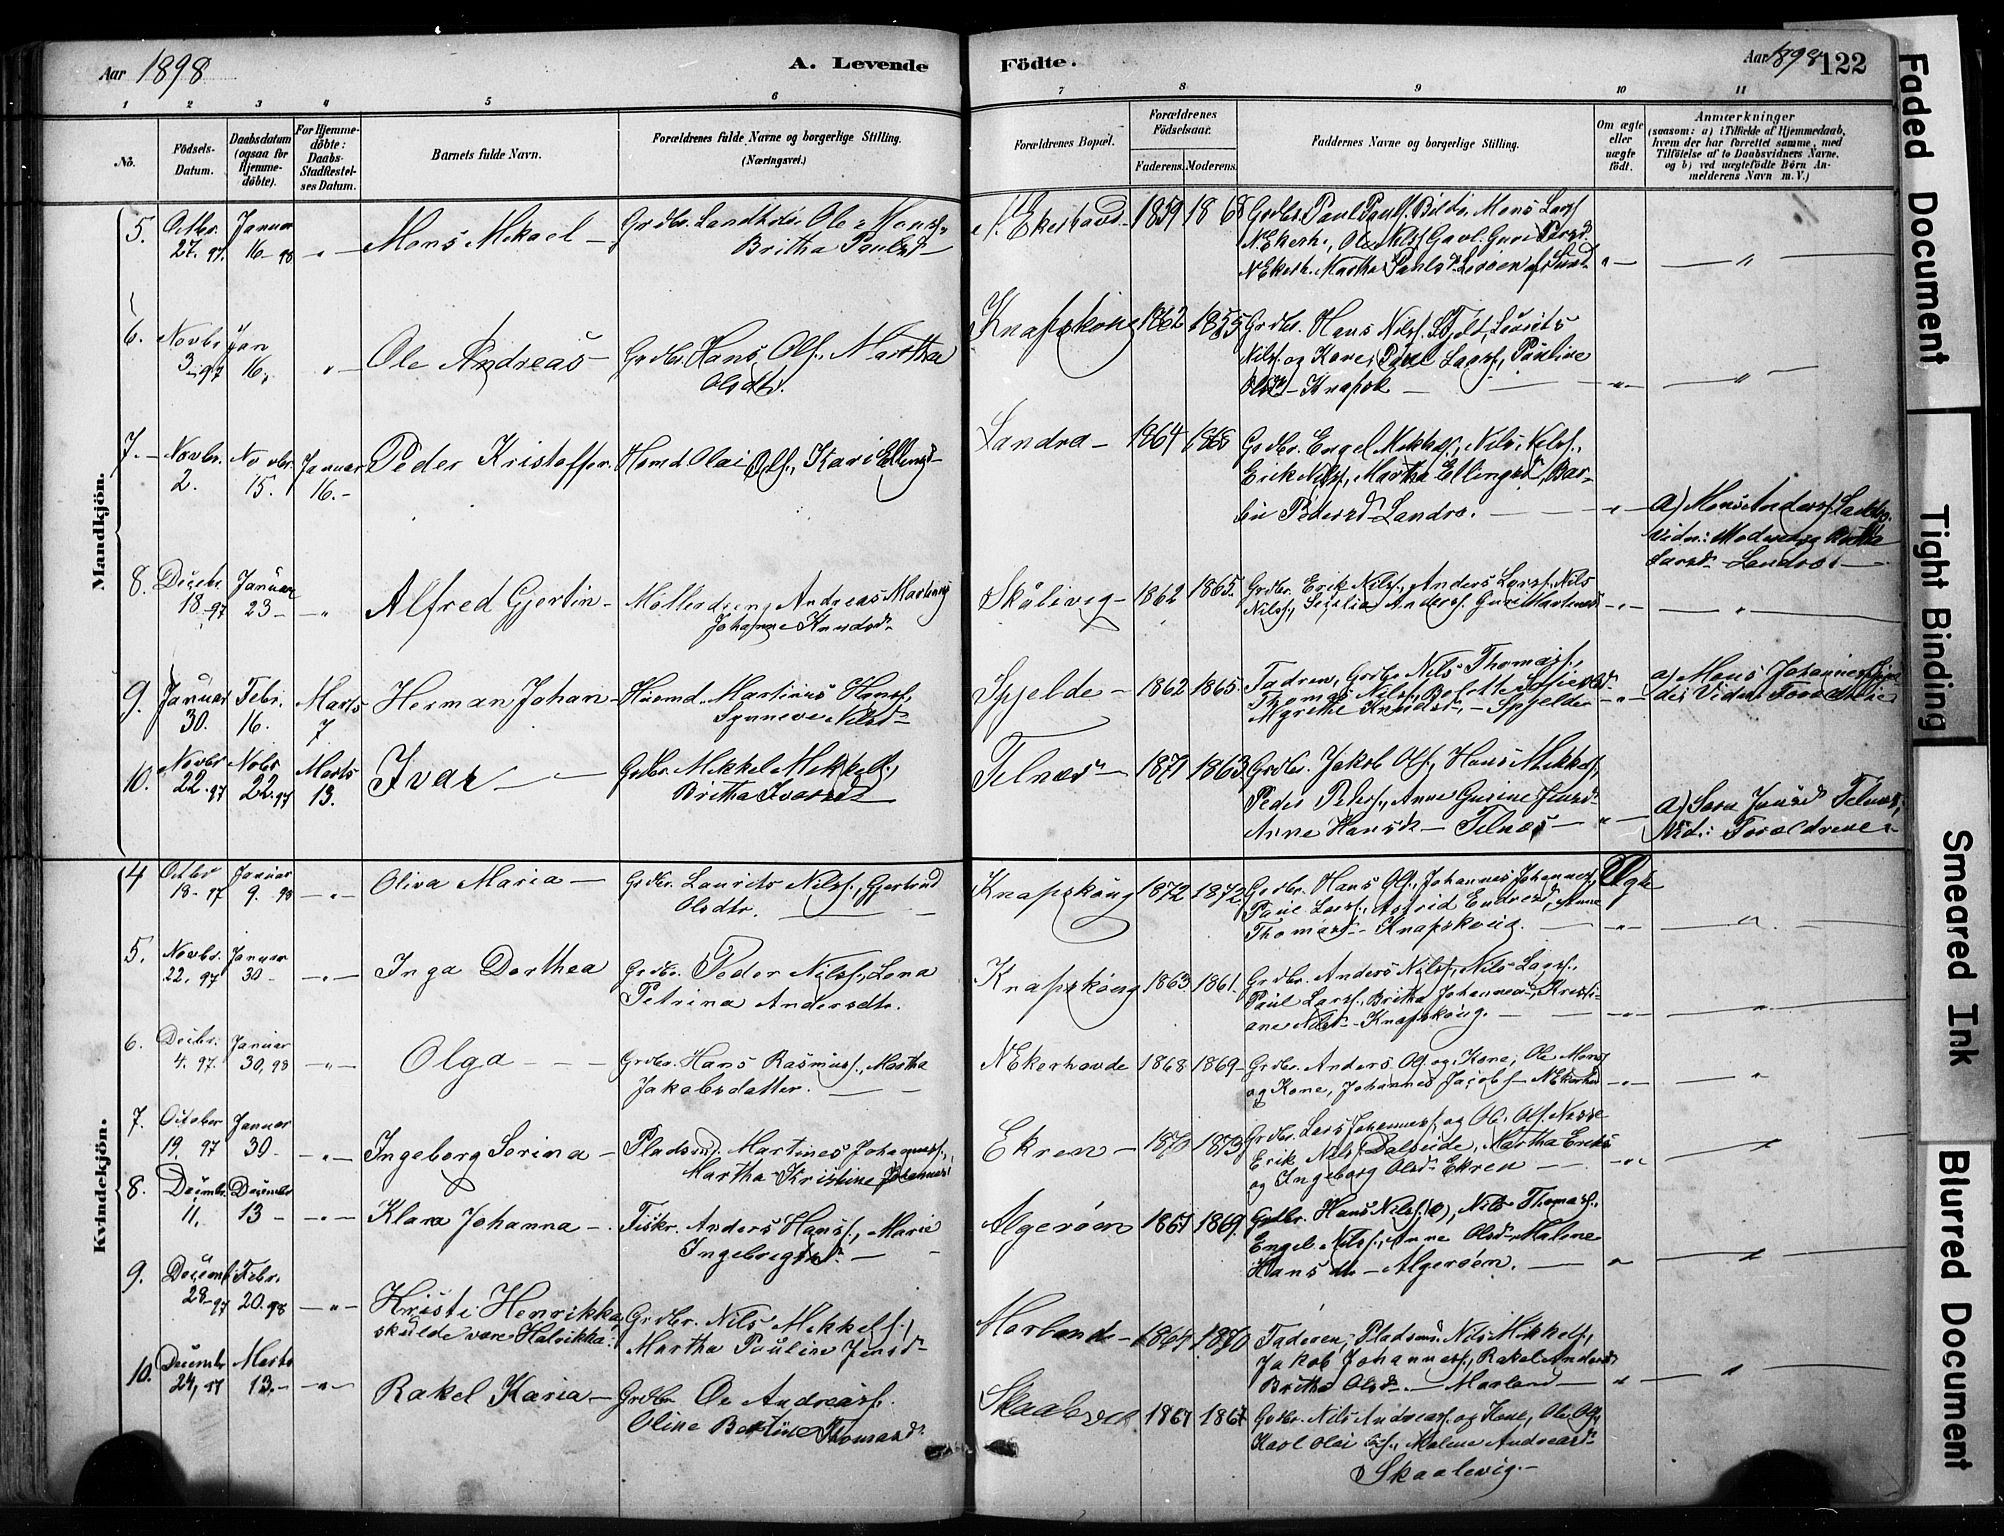 Aar 1898
A. Levende
Födte.
Aar 1898
122
1 2 3 4 5 6 7 8 9 10 11
No.
Födsels-
Datum.
Daabsdatum
(ogsaa for
Hjemme-
döbte).
For Hjemme-
döbte:
Daabs-
Stadfæstel-
ses Datum.
Barnets fulde Navn.
Forældrenes fulde Navne og borgerlige Stilling.
(Næringsvei.)
Forældrenes Bopæl.
Forældrenes
Födselsaar.
Faderens. Moderens.
Faddernes Navne og borgerlige Stilling.
Om ægte
eller
uægte
födt.
Anmærkninger
(saasom: a) i Tilfælde af Hjemmedaab,
hvem der har forrettet samme, med
Tilföielse af to Daabsvidners Navne,
og b) ved uægtefödte Börn An-
melderens Navn m. V.)
Mandkjön.
5. Octbr. 27. 97. Januar 16-98 Mons Mikael
Grdbr. Ole Mons.
Britha Paulsd
N. Ekerhovd 1859 1868
Grdbr. Paul Pauls. Bildö, Mons Larss
N Ekerh., Ole Nilss
N Ekerh. Martha
6. Novbr 3-97 Jan 16. Ole Andreas
Grdbr. Hans Ols., Martha
Olsdtr.
Knapskoug 1862 1855
Grdbr. Hans Nilss. Laurits
Nilss. og Kone, Paul Larss, Pauline
Olsd - Knapsk
7. Novbr. 2. Novbr. 15. Januar 16. Peder Kristoffer
Olai Ols., Kari Ellingsd
Landro 1864 1868
Grdbr. Engel Mikkels., Nils Nilss.,
Erik Nilss., Martha Ellingsd, Bar-
bru Pedersd Landro.
a) Mons Anderss. Landro.
Vidn: Moderen og
Larsd. Landro
8. Decebr 18-97 Januar 23 Alfred Gjertin
Andreas Martins
Johanne Knudsd
Skålevig 1862 1865.
Grdbr. Erik Nilss., Anders Larss., Nils
Nilss., Anderss.
9. Januar 30. Febr. 16. Marts 7 Herman Johan
Husmd. Martinus Hanss.
Synneve Nilsd
Spjelde 1862 1865.
Fadren, Grdbr Nils Thomass.,
Thomas Nilss., Bolette
Agrethe Knudsd, - Spjelde
a) Mons Johannes
10. Novbr 22.97 Nobr 22.97 Marts 13. Ivar
Grdbr. Mikkel Mikkels.,
Britha Ivarsd
Telnæs 1871 1863
Grdbr. Jakob Ols., Hans Mikkels,
Peder Peders., Anne Gurine Jensd
Anne Hansd - Telnæs
a) Telnæs,
Vid: Forældrene
Kvindekjön.
4 Octbr 18-97 Januar 9. 98 Oliva Maria
Grdbr. Laurits Nilss., Gjertrud
Olsdtr.
Knapskoug 1872 1872
Grdbr. Hans Ols., Johannes Johanness,
Paul Larss., Astrid Endresd, Anne
Thomasd - Knapskoug.
Ægte
5. Novbr. 22. 97 Januar 30 Inga Dorthea
Grdbr. Peder Nilss., Lena
Petrina Andersdtr.
Knapskoug 1863 1861.
Grdbr. Anders Nilss., Nils Larss.,
Paul Larss., Britha Johannesd, Kristi-
ane Nilsd - Knapskoug.
6. Decbr. 4. 97. Januar 30, 98 Olga
Grdbr. Hans Rasmuss., Martha
Jakobsdatter.
N Ekerhovde 1868 1869
Grdbr. Anders Ols og Kone, Ole Mons
og Kone, Johannes Jacobs - N Ekerhov
7. October 19. 97 Januar 30 Ingeborg Serina
Pladsmd. Martines Johanness.,
Martha Kristine Johannesd
Ekren 1870 1873
Grdbr. Lars Johanness. og Ole Ols. Nesse
Erik Nilss Dalseide, Martha Eriks
og Ingeborg Olsd - Ekren
8. Decembr. 11. December 13 Klara Johanna
Fiskr. Anders Hanss., Marie
Ingebrigtsd.
Algeröen 1867 1869.
Grdbr. Hans Nilss., Nils Thomass.,
Engel Nilss., Anne Olsd, Malene
Hansdtr - Algeröen.
9. Decemb. 28-97 Febr. 20. 98 Kristi Henrikka,
skulde være Halvikka.
Grdbr. Nils Mikkels.,
Martha Pauline Jensd
Morlande 1864 1870
Faderen, Pladsmd. Nils Mikkels.,
Jakob Johanness., Rakel Andersd
Britha Olsd. - Morland
10. Decembr 24, 97 Marts 13. Rakel Karia
Grdbr Ole Andreass.
Oline Bertine Thomasd
Skaalevik 1867 1867
Grdbr. Nils Andreass. og Kone, Ole Ols,
Karl Olai Ols., Malene Andreasd
Skaalevig.
Faded Document
Tight Binding
Smeared Ink
Blurred Document